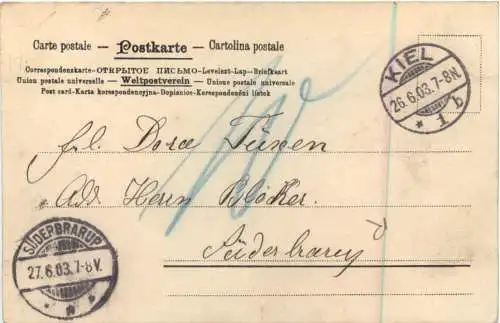 Carte postale — Postkarte — Cartolina postale
Correspondenskarte-ОТКРЫТОЕ ПИСЬМО-Levelezö-Lap-Brefkaart
Union postale universelle — Weltpostverein — Unione postale universale
Post card-Karta korespondencyjna-Dopisnice-Korespondenční lístek
KIEL
26.6.03.7-8N.
* 1 b
frl. Dora Tüxen
Adr Herrn Blöcker.
Süderbrarup
SÜDERBRARUP
27.6.03.7-8V.
* * *